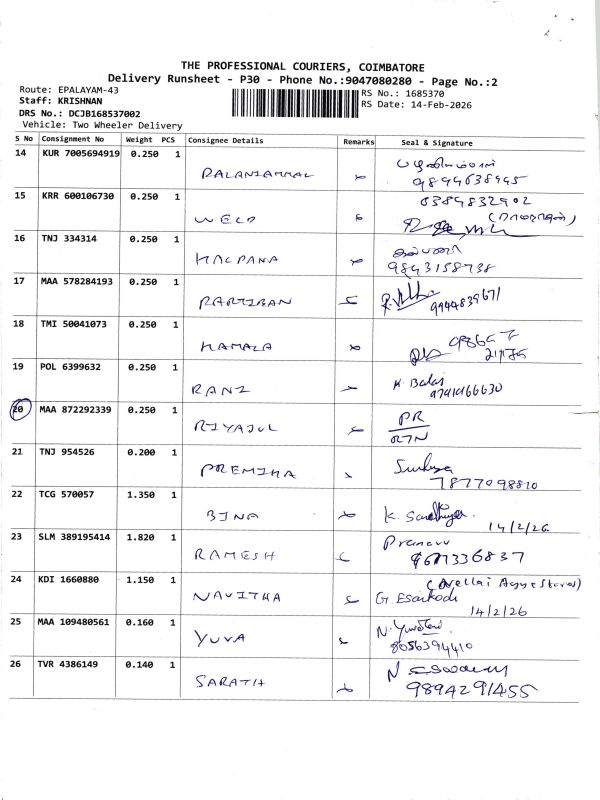 THE PROFESSIONAL COURIERS, COIMBATORE
Delivery Runsheet - P30 - Phone No.:9047080280 - Page No.:2
Route: EPALAYAM-43
RS No.: 1685370
Staff: KRISHNAN
RS Date: 14-Feb-2026
DRS No.: DCJB168537002
Vehicle: Two Wheeler Delivery
S No Consignment No Weight PCS Consignee Details Remarks Seal & Signature
14 KUR 7005694919 0.250 1 PALANIAMMAL பழனியம்மாள்
9894638945
15 KRR 600106730 0.250 1 WELD 6384832902
16 TNJ 334314 0.250 1 KALPANA கல்பனா
9843158738
17 MAA 578284193 0.250 1 PARTIBAN 9944839671
18 TMI 50041073 0.250 1 KAMALA
19 POL 6399632 0.250 1 RANI K. Balaji
20 MAA 872292339 0.250 1 RIYAJUL PR
RTN
21 TNJ 954526 0.200 1 PREMIKA Surya
7877098810
22 TCG 570057 1.350 1 BINA K. Sandhiya
14/2/26
23 SLM 389195414 1.820 1 RAMESH Pranavv
9677336837
24 KDI 1660880 1.150 1 NAVITHA G. Esakkodi
14/2/26
25 MAA 109480561 0.160 1 YUVA N. Yuvarani
8056394410
26 TVR 4386149 0.140 1 SARATH
9894291455